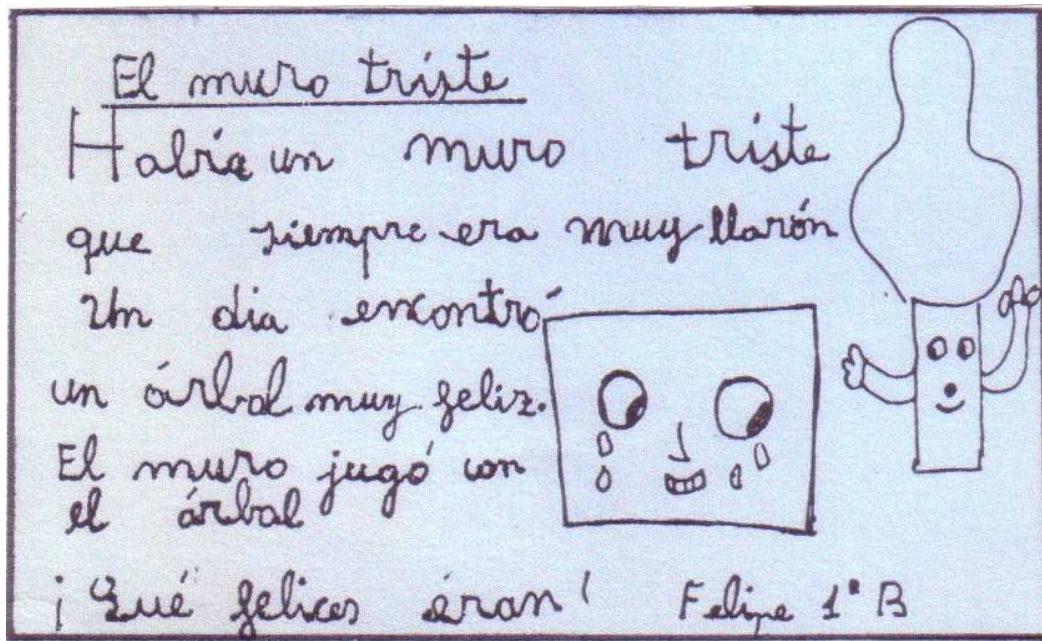 El muro triste
Había un muro triste
que siempre era muy llarón
Un dia encontró
un árbol muy feliz.
El muro jugó con
el árbol
¡Qué felices éran!
Felipe 1º B